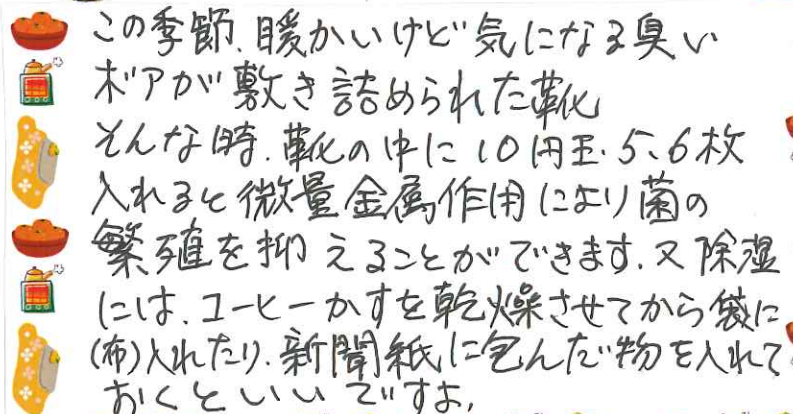 この季節、暖かいけど気になる臭い
ボアが敷き詰められた靴
そんな時、靴の中に10円玉、5、6枚
入れると微量金属作用により菌の
繁殖を抑えることができます。又除湿
には、コーヒーかすを乾燥させてから袋に
(布)入れたり、新聞紙に包んだ物を入れて
おくといいですよ。